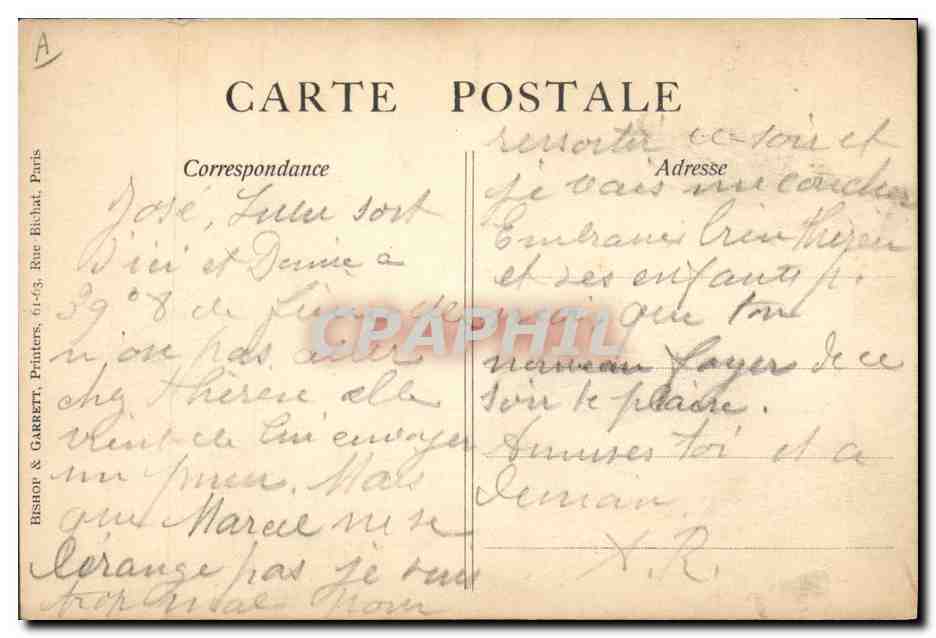 A
CARTE POSTALE
Correspondance
José, Lulu sort
d'ici et Denise a
39°8 de fièvre
n'ose pas aller
chez Thérèse elle
vient de lui envoyer
un pneu. Mais
que Marcel ne se
dérange pas je suis
trop mal pour
Adresse
ressortir ce soir et
je vais me coucher
Embrasses bien Thérèse
et ses enfants p.
moi, que ton
nouveau foyer de ce
soir te plaise.
Amuses toi et a
demain
A.R.
BISHOP & GARRETT, Printers, 61-63, Rue Bichat, Paris
CPAPHIL